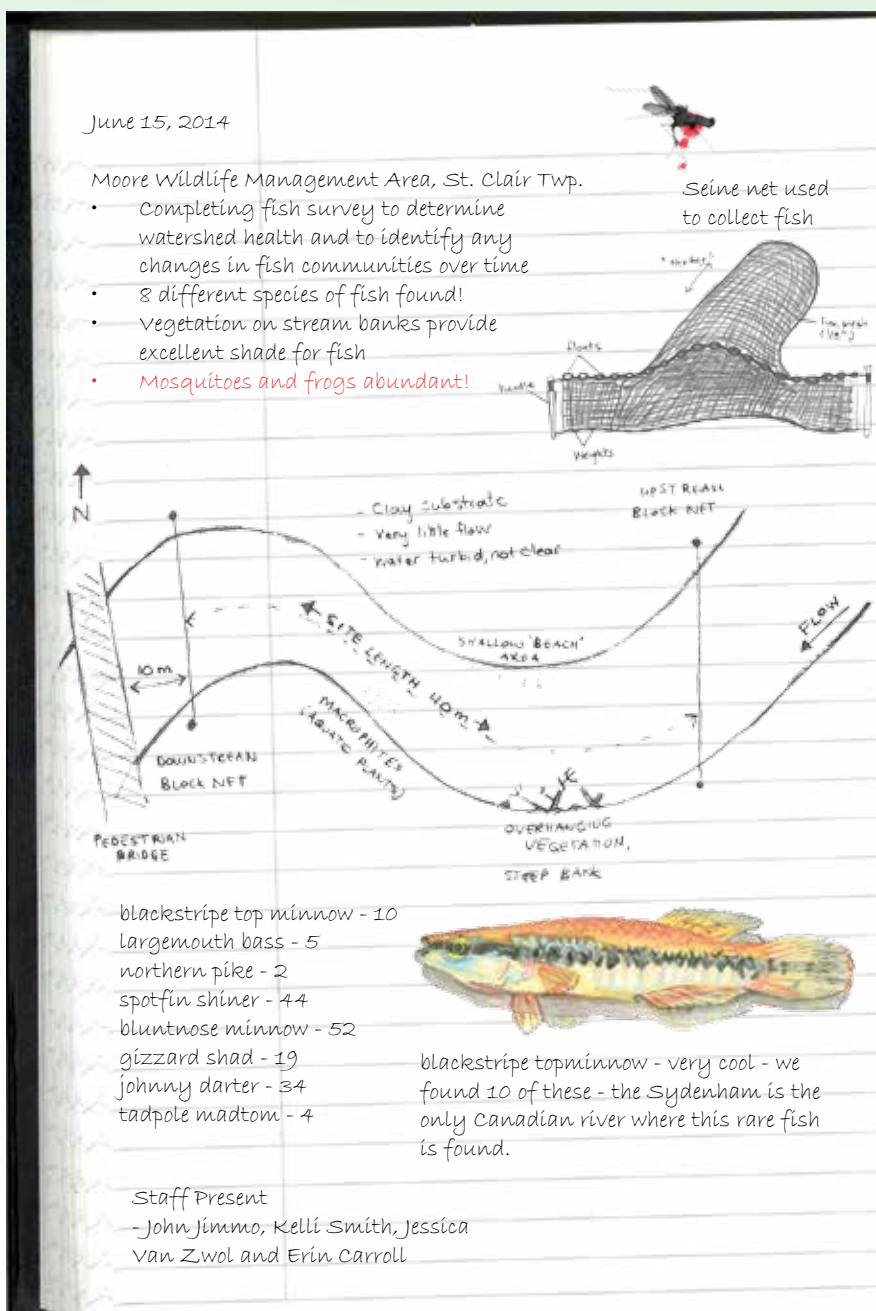 June 15, 2014
Moore Wildlife Management Area, St. Clair Twp.
• Completing fish survey to determine
watershed health and to identify any
changes in fish communities over time
• 8 different species of fish found!
• Vegetation on stream banks provide
excellent shade for fish
• Mosquitoes and frogs abundant!
Seine net used
to collect fish
floats
handle
Weights
N
- Clay substrate
- Very little flow
- water turbid, not clear
UPSTREAM
BLOCK NET
FLOW
SHALLOW 'BEACH'
AREA
SITE LENGTH 40m
10m
MACROPHYTES
(AQUATIC PLANTS)
DOWNSTREAM
BLOCK NET
PEDESTRIAN
BRIDGE
OVERHANGING
VEGETATION,
STEEP BANK
blackstripe top minnow - 10
largemouth bass - 5
northern pike - 2
spotfin shiner - 44
bluntnose minnow - 52
gizzard shad - 19
johnny darter - 34
tadpole madtom - 4
blackstripe topminnow - very cool - we
found 10 of these - the Sydenham is the
only Canadian river where this rare fish
is found.
Staff Present
- John Jimmo, Kelli Smith, Jessica
Van Zwol and Erin Carroll